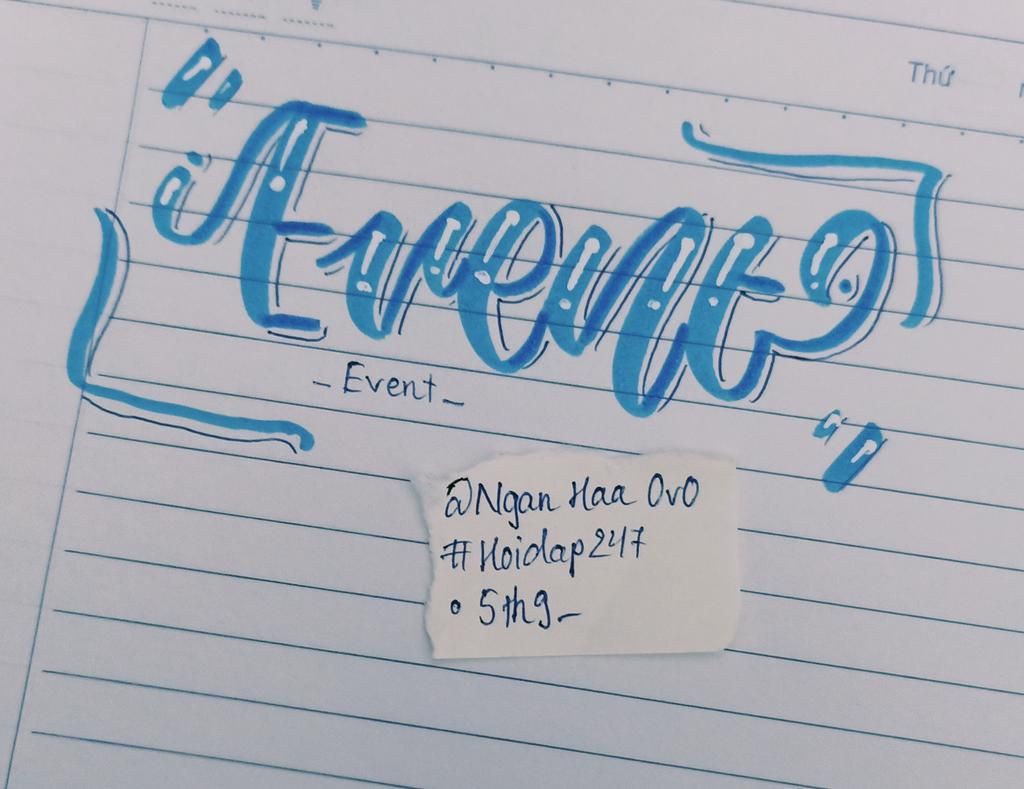 Thứ
"Event"
_Event_
@Ngan Haa OvO
#Hoidap247
• 5th9_